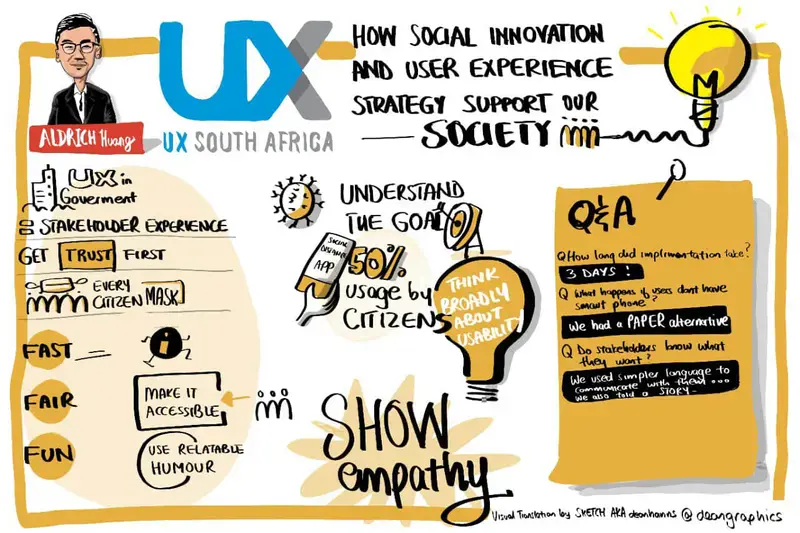 ALDRICH Huang
UX
UX SOUTH AFRICA
HOW SOCIAL INNOVATION
AND USER EXPERIENCE
STRATEGY SUPPORT OUR
SOCIETY
UX in
Goverment
STAKEHOLDER EXPERIENCE
GET TRUST FIRST
EVERY
CITIZEN MASK
FAST
i
FAIR
MAKE IT
ACCESSIBLE
FUN
USE RELATABLE
HUMOUR
UNDERSTAND
THE GOAL
SOCIAL
DISTANCE
APP
50%
usage by
CITIZENS
THINK
BROADLY
ABOUT
USABILITY
SHOW
empathy
Q&A
Q How long did implementation take?
3 DAYS!
Q What happens if users dont have
smart phone?
We had a PAPER alternative
Q Do stakeholders know what
they want?
We used simpler language to
communicate with them...
we also told a STORY_
Visual Translation by SKETCH AKA deanhanns @deangraphics